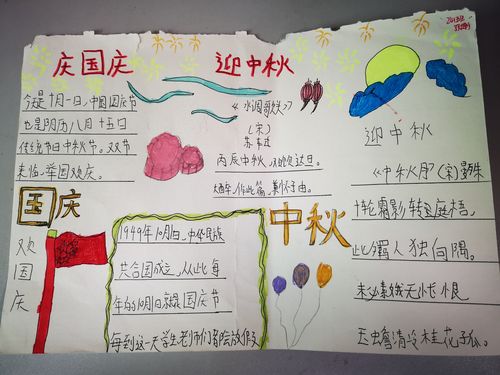 庆国庆
迎中秋
今是十月一日，中国国庆节
也是阴历八月十五日
传统节日中秋节。双节
来临，举国欢庆。
国庆
欢国庆
《水调歌头》
(宋)
苏轼
丙辰中秋，欢饮达旦。
大醉，作此篇，兼怀子由。
1949年10月1日，中华民族
共合国成立，从此每
年的10月1日就是国庆节
每到这一天学生老师们都会放假
中秋
迎中秋
《中秋月》(宋)晏殊
十轮霜影转庭梧。
此夕羁人独向隅。
未必素娥无怅恨
玉蟾清冷桂花孤。